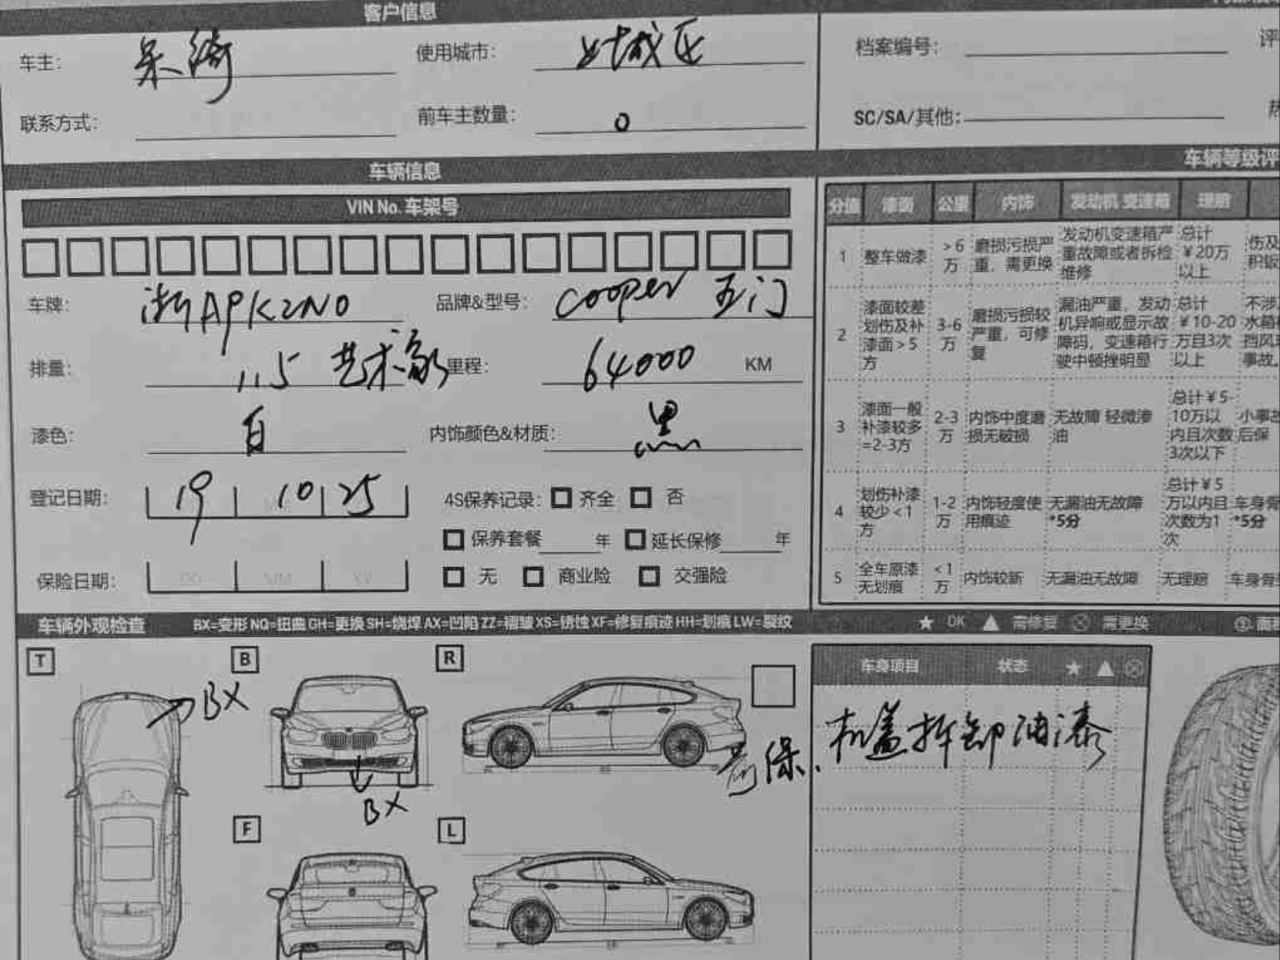 客户信息
车主：
使用城市：
档案编号：
评
联系方式：
前车主数量： 0
SC/SA/其他：
车辆信息
车辆等级评
VIN No. 车架号
车牌： 浙APK2N0
品牌&型号： Cooper 五门
排量： 1.5 艺术家
里程： 64000 KM
漆色： 白
内饰颜色&材质： 黑
登记日期： 19 10 25
4S保养记录： 齐全 否
保养套餐 年 延长保修 年
保险日期： DD MM YY
无 商业险 交强险
分值 漆面 公里 内饰 发动机 变速箱 理赔
1 整车做漆 >6万 磨损污损严重，需更换 发动机变速箱严重故障或者拆检维修 总计￥20万以上 伤及 积钣
2 漆面较差划伤及补漆面>5方 3-6万 磨损污损较严重，可修复 漏油严重，发动机异响或显示故障码，变速箱行驶中顿挫明显 总计￥10-20万且3次以上 不涉 水箱 挡风 事故
3 漆面一般补漆较多=2-3方 2-3万 内饰中度磨损无破损 无故障 轻微渗油 总计￥5-10万以内且次数3次以下 小事故 后保
4 划伤补漆较少<1方 1-2万 内饰轻度使用痕迹 无漏油无故障 *5分 总计￥5万以内且次数为1次 车身骨 *5分
5 全车原漆无划痕 <1万 内饰较新 无漏油无故障 无理赔 车身骨
车辆外观检查 BX=变形 NQ=扭曲 GH=更换 SH=烧焊 AX=凹陷 ZZ=褶皱 XS=锈蚀 XF=修复痕迹 HH=划痕 LW=裂纹
★ OK ▲ 需修复 ⊗ 需更换
T B R
BX
BX
F L
车身项目 状态 ★ ▲ ⊗
机盖拆卸油漆